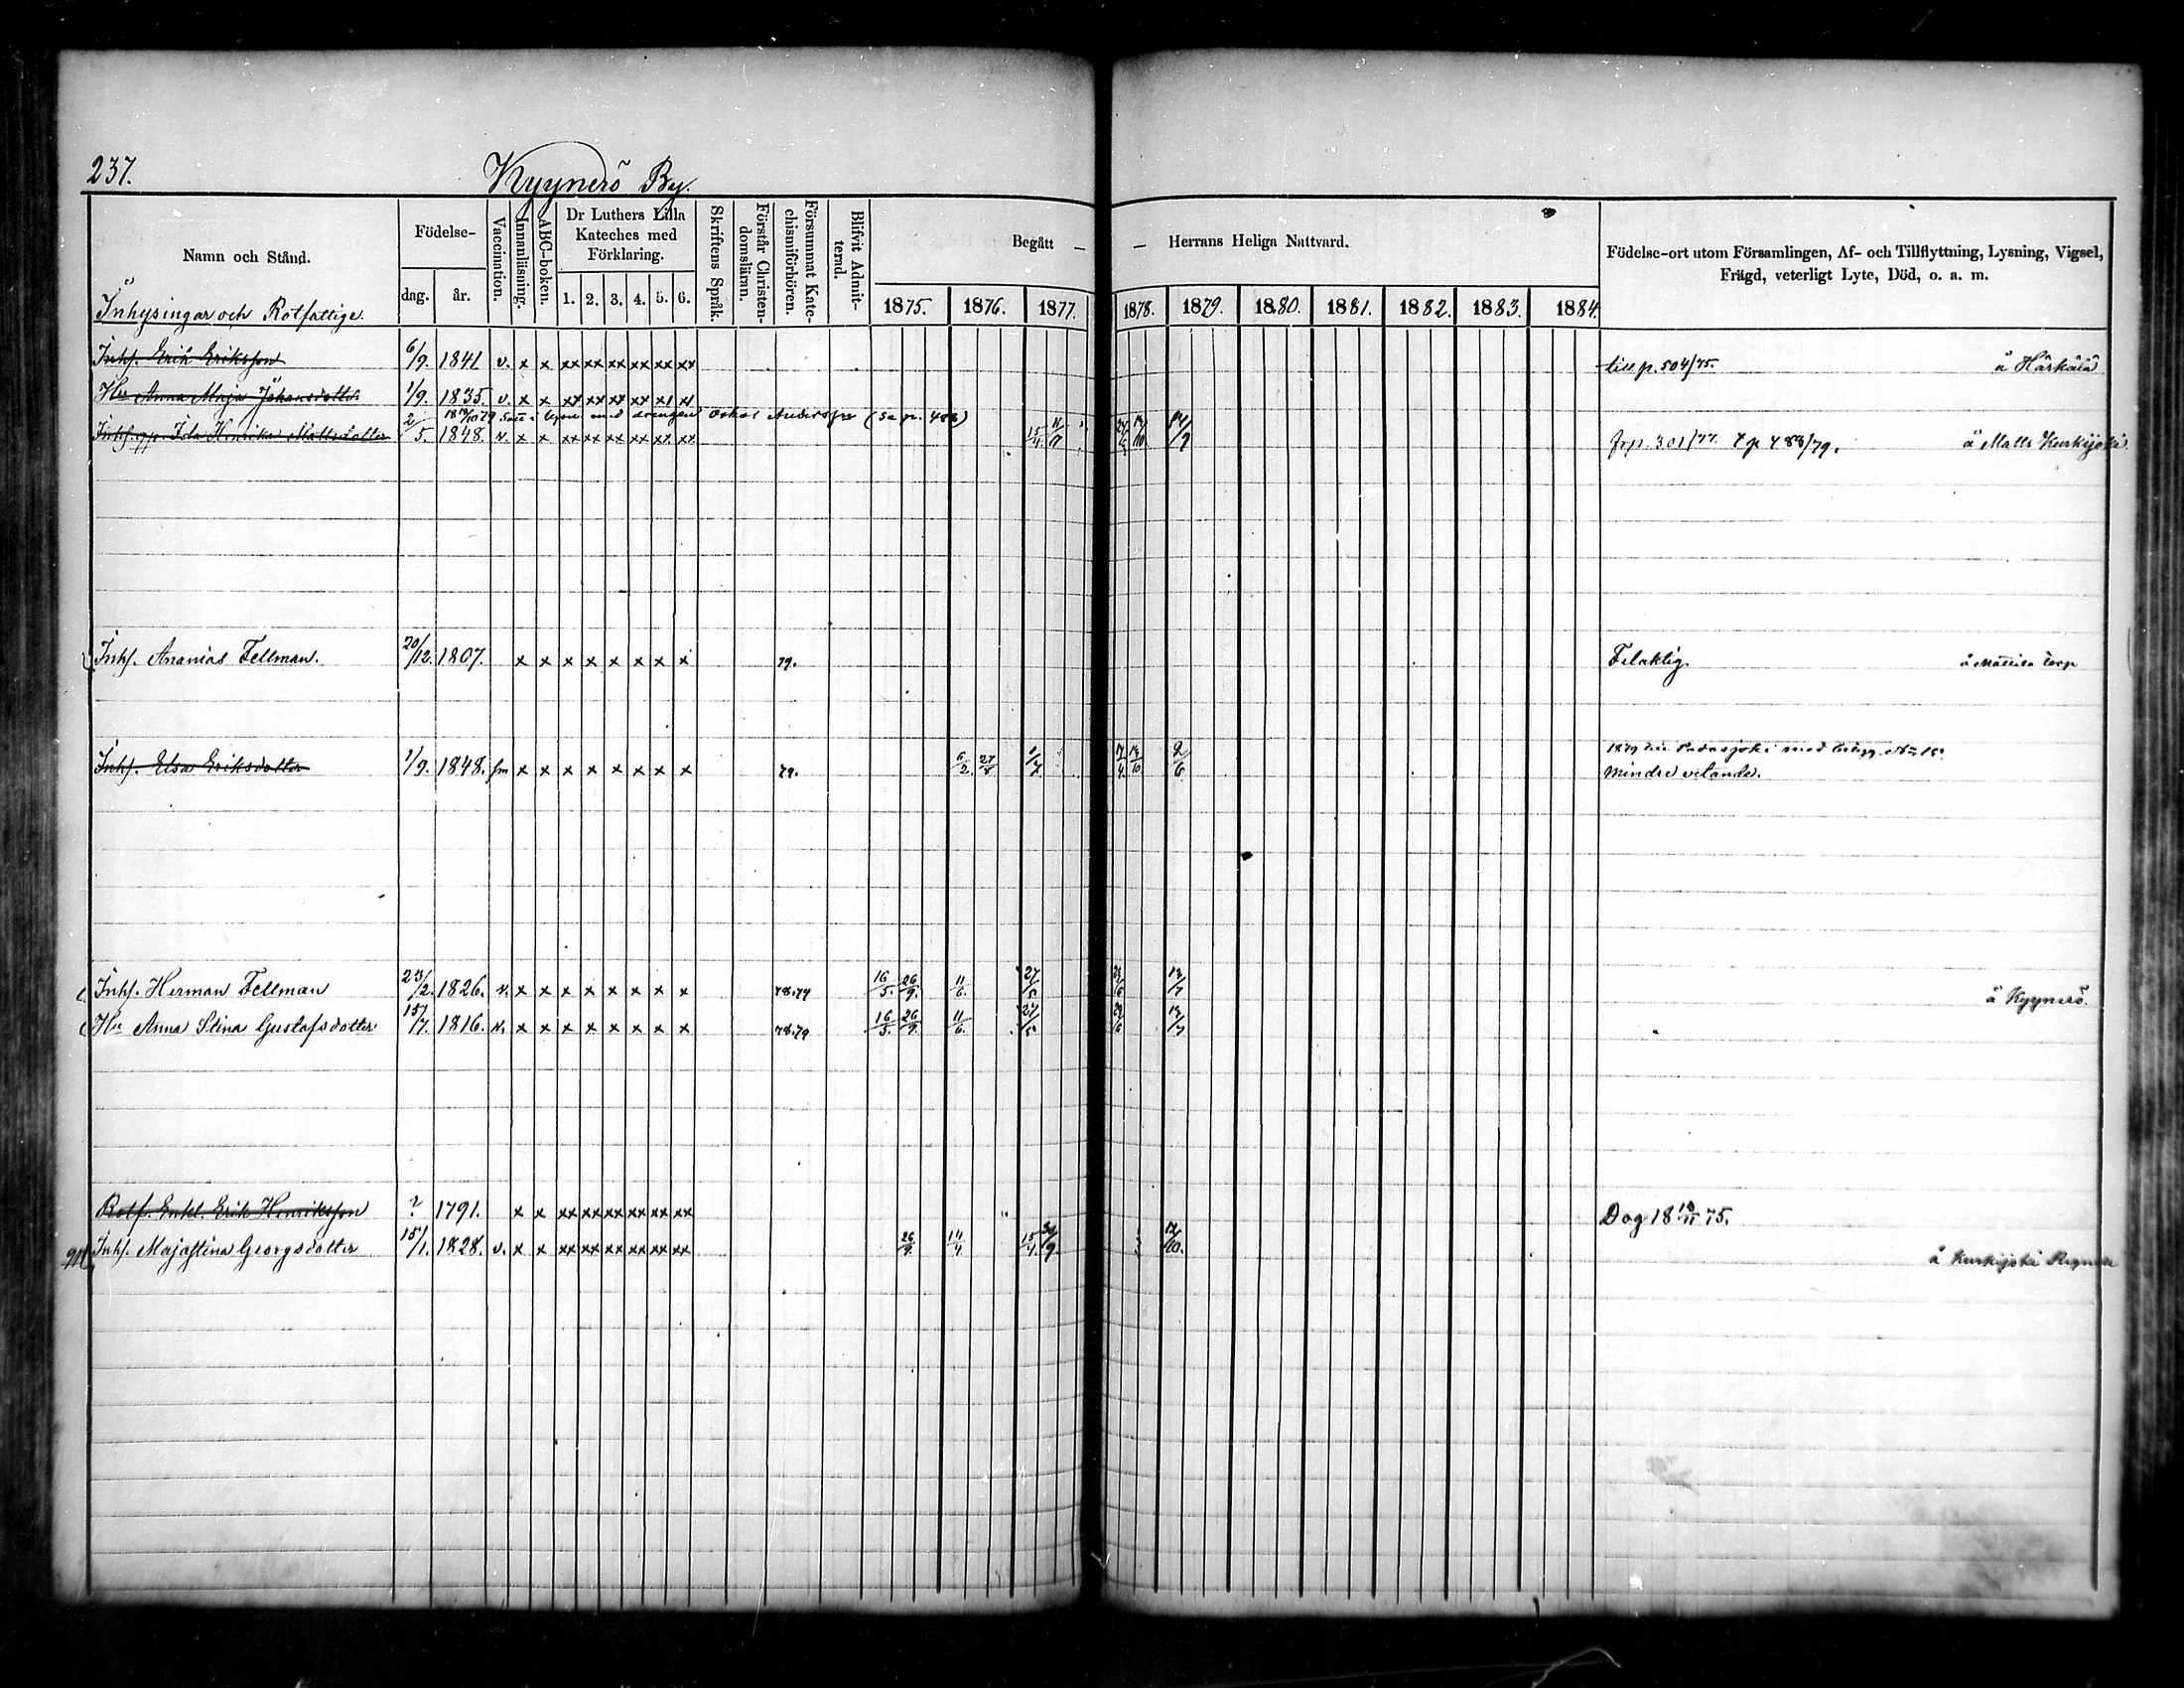 237. Kyynerö By.
Namn och Stånd. Födelse- dag. år. Vaccination. Innanläsning. ABC-boken. Dr Luthers Lilla Kateches med Förklaring. 1. 2. 3. 4. 5. 6. Skriftens Språk. Förstår Christendomsläran. Försummat Katechismiförhören. Blifvit Admitterad. Begått — — Herrans Heliga Nattvard. Födelse-ort utom Församlingen, Af- och Tillflyttning, Lysning, Vigsel, Frägd, veterligt Lyte, Död, o. a. m.
Inhysingar och Rotfattige. 1875. 1876. 1877. 1878. 1879. 1880. 1881. 1882. 1883. 1884.
Inhs. Erik Eriksson 6/9. 1841 v. x x xx xx xx xx xx xx till p. 504/75. å Härkälä
Hu Anna Maja Johansdotter 1/9. 1835. v. x x xx xx xx xx x1 x1
med drengen Oskar Andersson (se p. 488)
Ida Henrika Mattsdotter 2/5. 1848. v. x x xx xx xx xx xx xx 15/4. 14/9 fr p. 301/77. t p 488/79. å Matts Kurkijoki
Inhs. Ananias Fellman. 20/12. 1807. x x x x x x x x 79. Felaktig. å Mattila torp
Inhs. Elsa Eriksdotter 1/9. 1848. x x x x x x x x 79. 6/2. 27/8 1/7 17/4 13/10 2/6 1879 till Padasjoki med betyg. N 15.
mindre vetande.
Inhs. Herman Fellman 23/2. 1826. v. x x x x x x x x 78.79 16/5. 26/9. 11/6. 27/5 13/7 å Kyynerö.
Hu Anna Stina Gustafsdotter 15/7. 1816. v. x x x x x x x x 78.79 16/5. 26/9. 11/6. 27/5 13/7
Rotf. Enkl. Erik Henriksson ? 1791. x x xx xx xx xx xx xx Dog 18 10/11 75.
Inhs. Majastina Georgsdotter 15/1. 1828. v. x x xx xx xx xx xx xx 26/9. 14/4. 15/4. 30/9. 12/10. å Kurkijoki